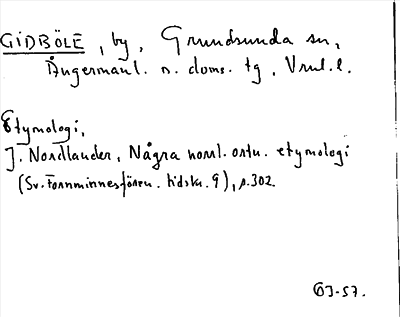 GIDBÖLE, by, Grundsunda sn,
Ångermanl. n. doms. tg, Vnl. l.
Etymologi,
J. Nordlander, Några norrl. ortn. etymologi
(Sv. Fornminnesfören. tidskr. 9), s. 302.
ÖJ-57.